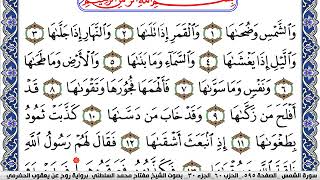 بِسْمِ ٱللَّهِ ٱلرَّحْمَٰنِ ٱلرَّحِيمِ
وَٱلشَّمْسِ وَضُحَىٰهَا ١ وَٱلْقَمَرِ إِذَا تَلَىٰهَا ٢ وَٱلنَّهَارِ إِذَا جَلَّىٰهَا ٣
وَٱلَّيْلِ إِذَا يَغْشَىٰهَا ٤ وَٱلسَّمَآءِ وَمَا بَنَىٰهَا ٥ وَٱلْأَرْضِ وَمَا طَحَىٰهَا
٦ وَنَفْسٍ وَمَا سَوَّىٰهَا ٧ فَأَلْهَمَهَا فُجُورَهَا وَتَقْوَىٰهَا ٨ قَدْ
أَفْلَحَ مَن زَكَّىٰهَا ٩ وَقَدْ خَابَ مَن دَسَّىٰهَا ١٠ كَذَّبَتْ ثَمُودُ
بِطَغْوَىٰهَا ١١ إِذِ ٱنۢبَعَثَ أَشْقَىٰهَا ١٢ فَقَالَ لَهُمْ رَسُولُ ٱللَّهِ
سورة الشمس الصفحة ٥٩٥ الحزب ٦٠ الجزء ٣٠ بصوت الشيخ مفتاح محمد السلطني برواية روح عن يعقوب الحضرمي